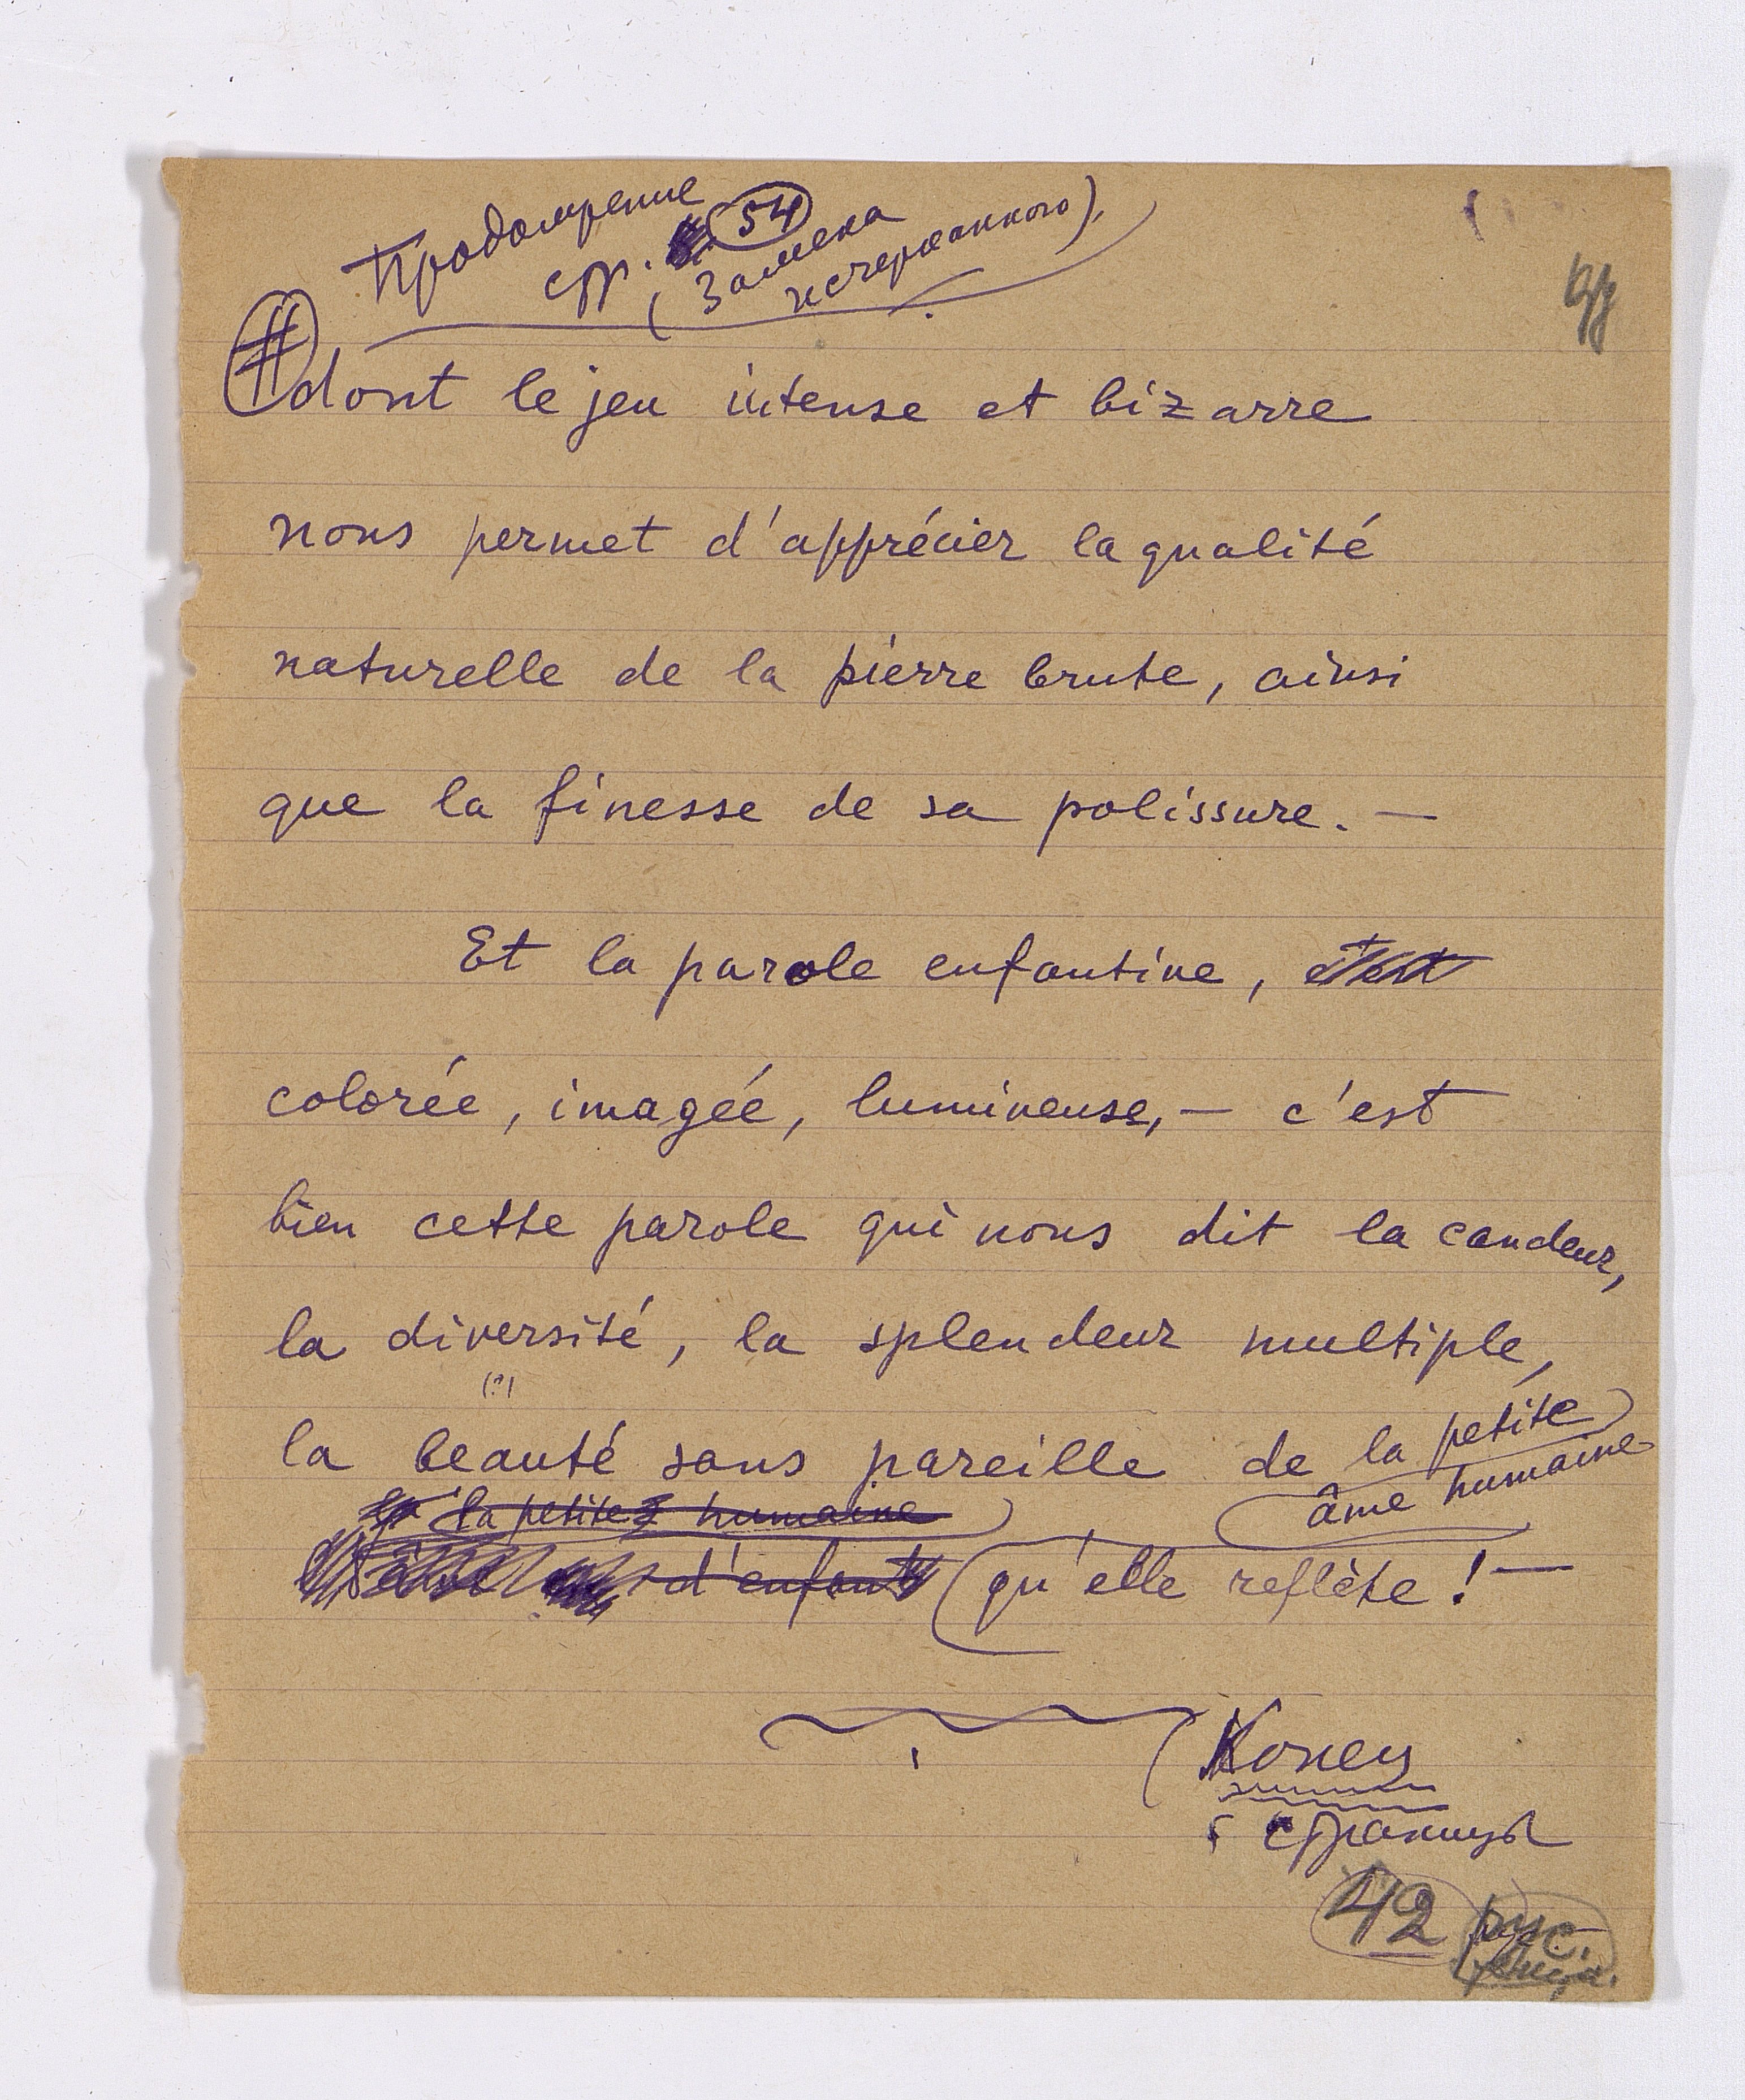 Продолжение
стр. 54
(Замена
исчерканного).
# dont le jeu intense et bizarre
nous permet d'apprécier la qualité
naturelle de la pierre brute, ainsi
que la finesse de sa polissure. —
Et la parole enfantine,
colorée, imagée, lumineuse, — c'est
bien cette parole qui nous dit la candeur,
la diversité, la splendeur multiple,
(?)
la beauté sans pareille de la petite
âme humaine
la petite humaine
d'enfant qu'elle reflète! —
Конец
страницы
42 рус.